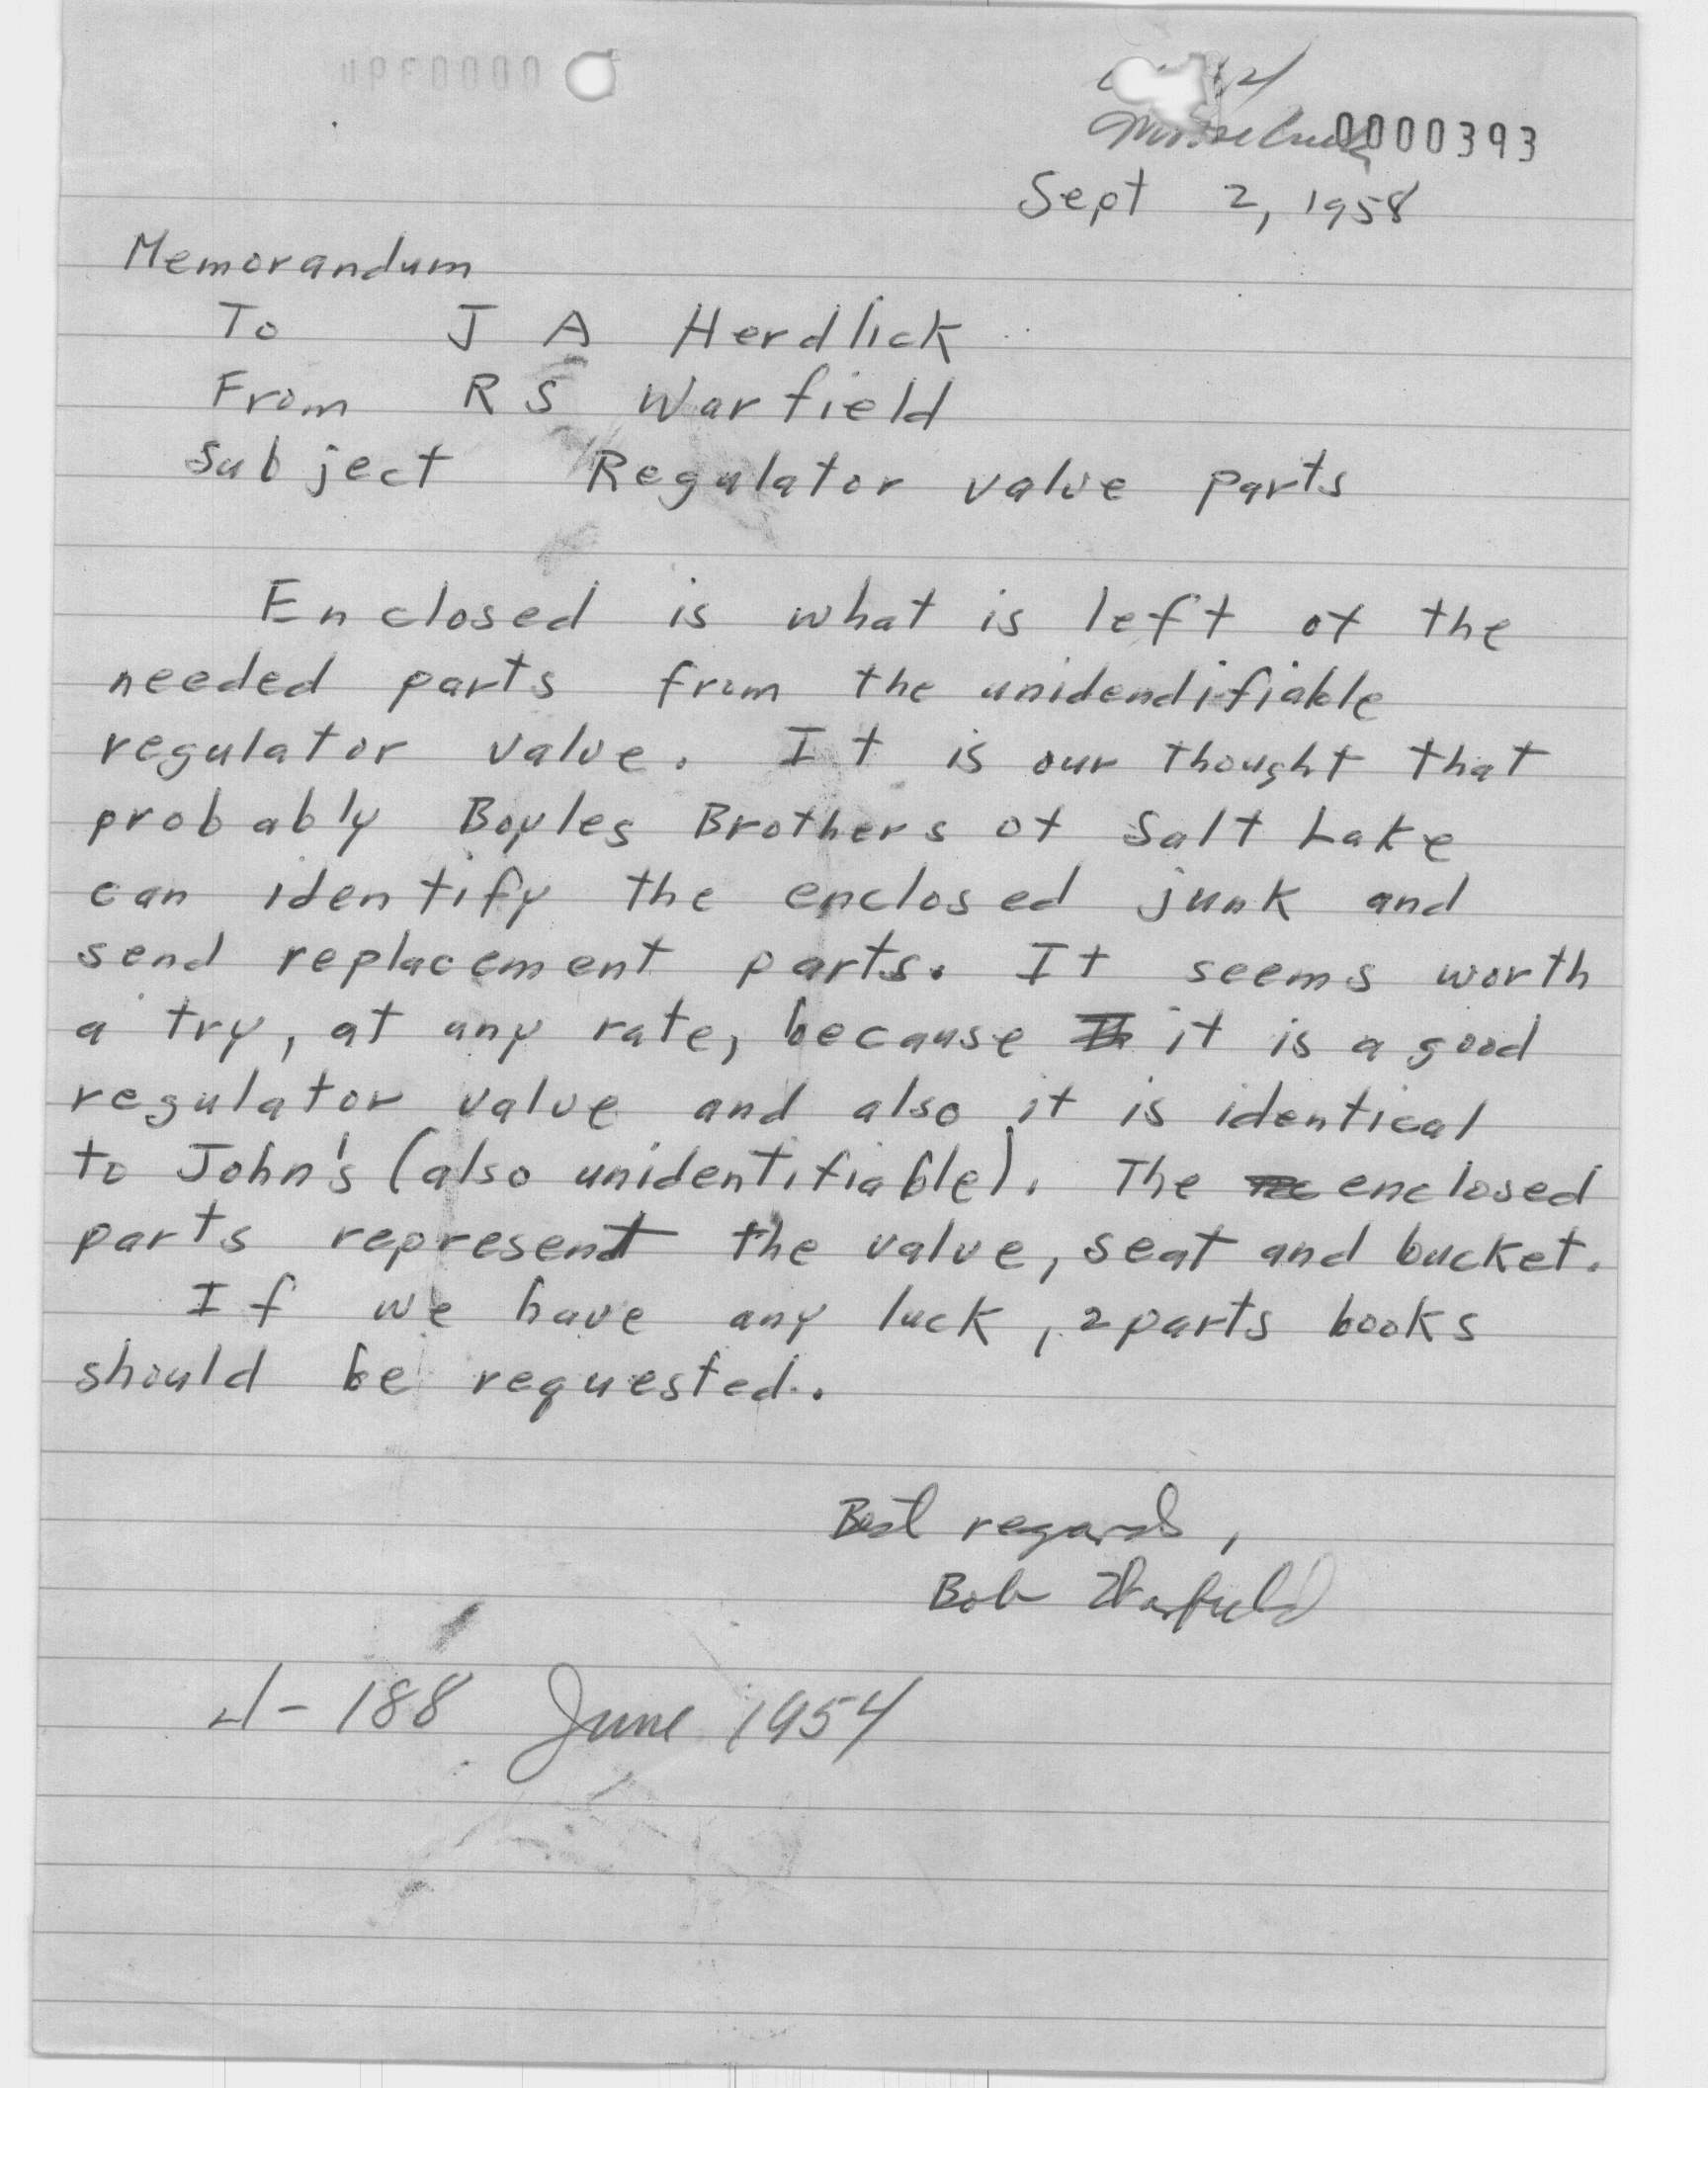 0000393
Sept 2, 1958
Memorandum
To J A Herdlick
From R S Warfield
Subject Regulator valve parts
Enclosed is what is left of the
needed parts from the unidendifiable
regulator valve. It is our thought that
probably Boyles Brothers of Salt Lake
can identify the enclosed junk and
send replacement parts. It seems worth
a try, at any rate, because it is a good
regulator valve and also it is identical
to John's (also unidentifiable). The enclosed
parts represent the valve, seat and bucket.
If we have any luck, 2 parts books
should be requested.
Best regards,
Bob Warfield
- 188 June 1954